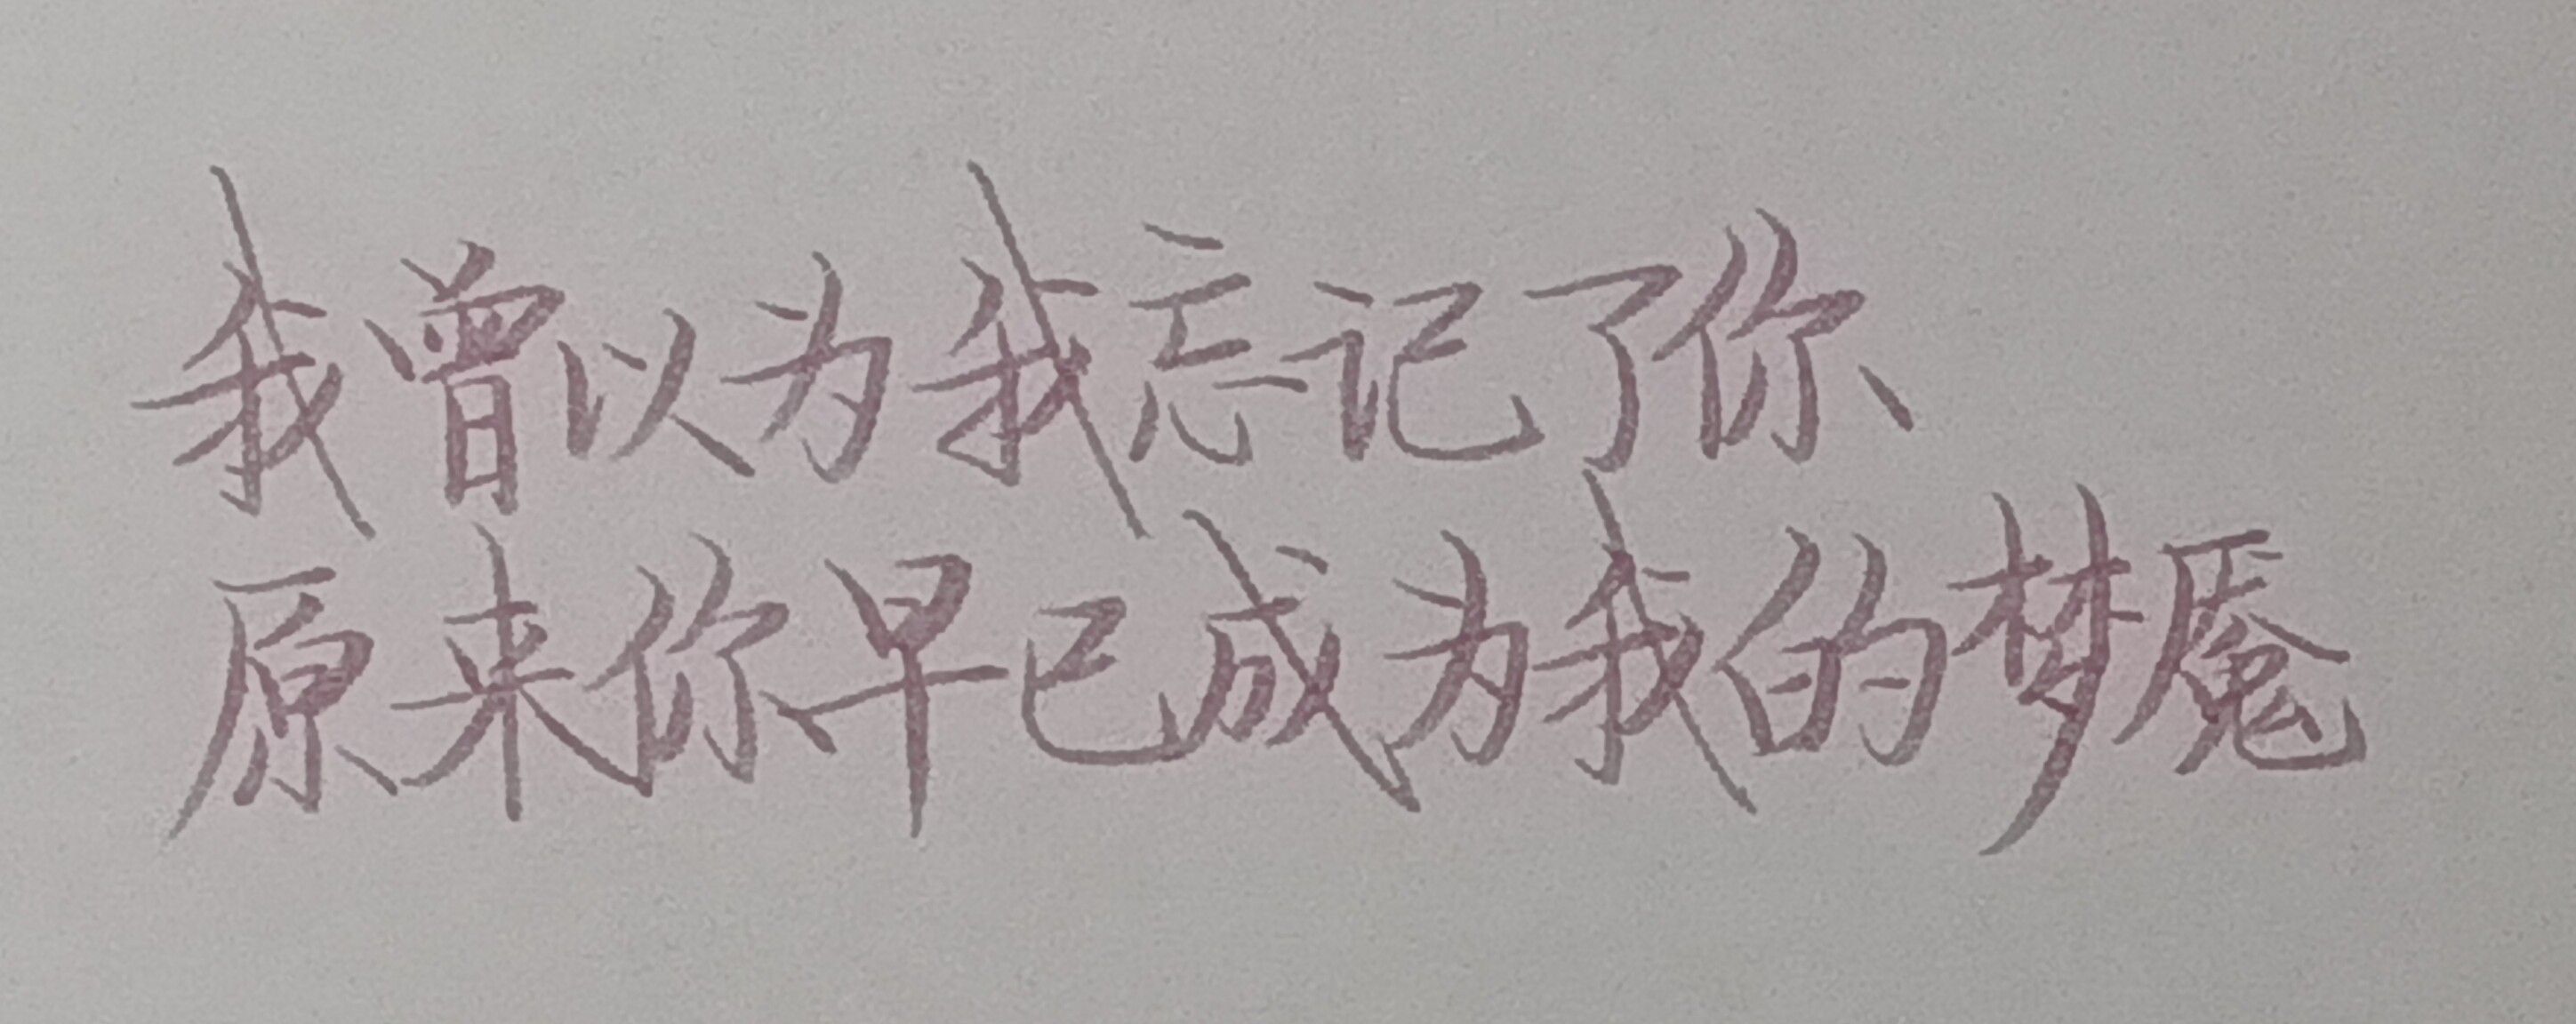 我曾以为我忘记了你
原来你早已成为我的梦魇